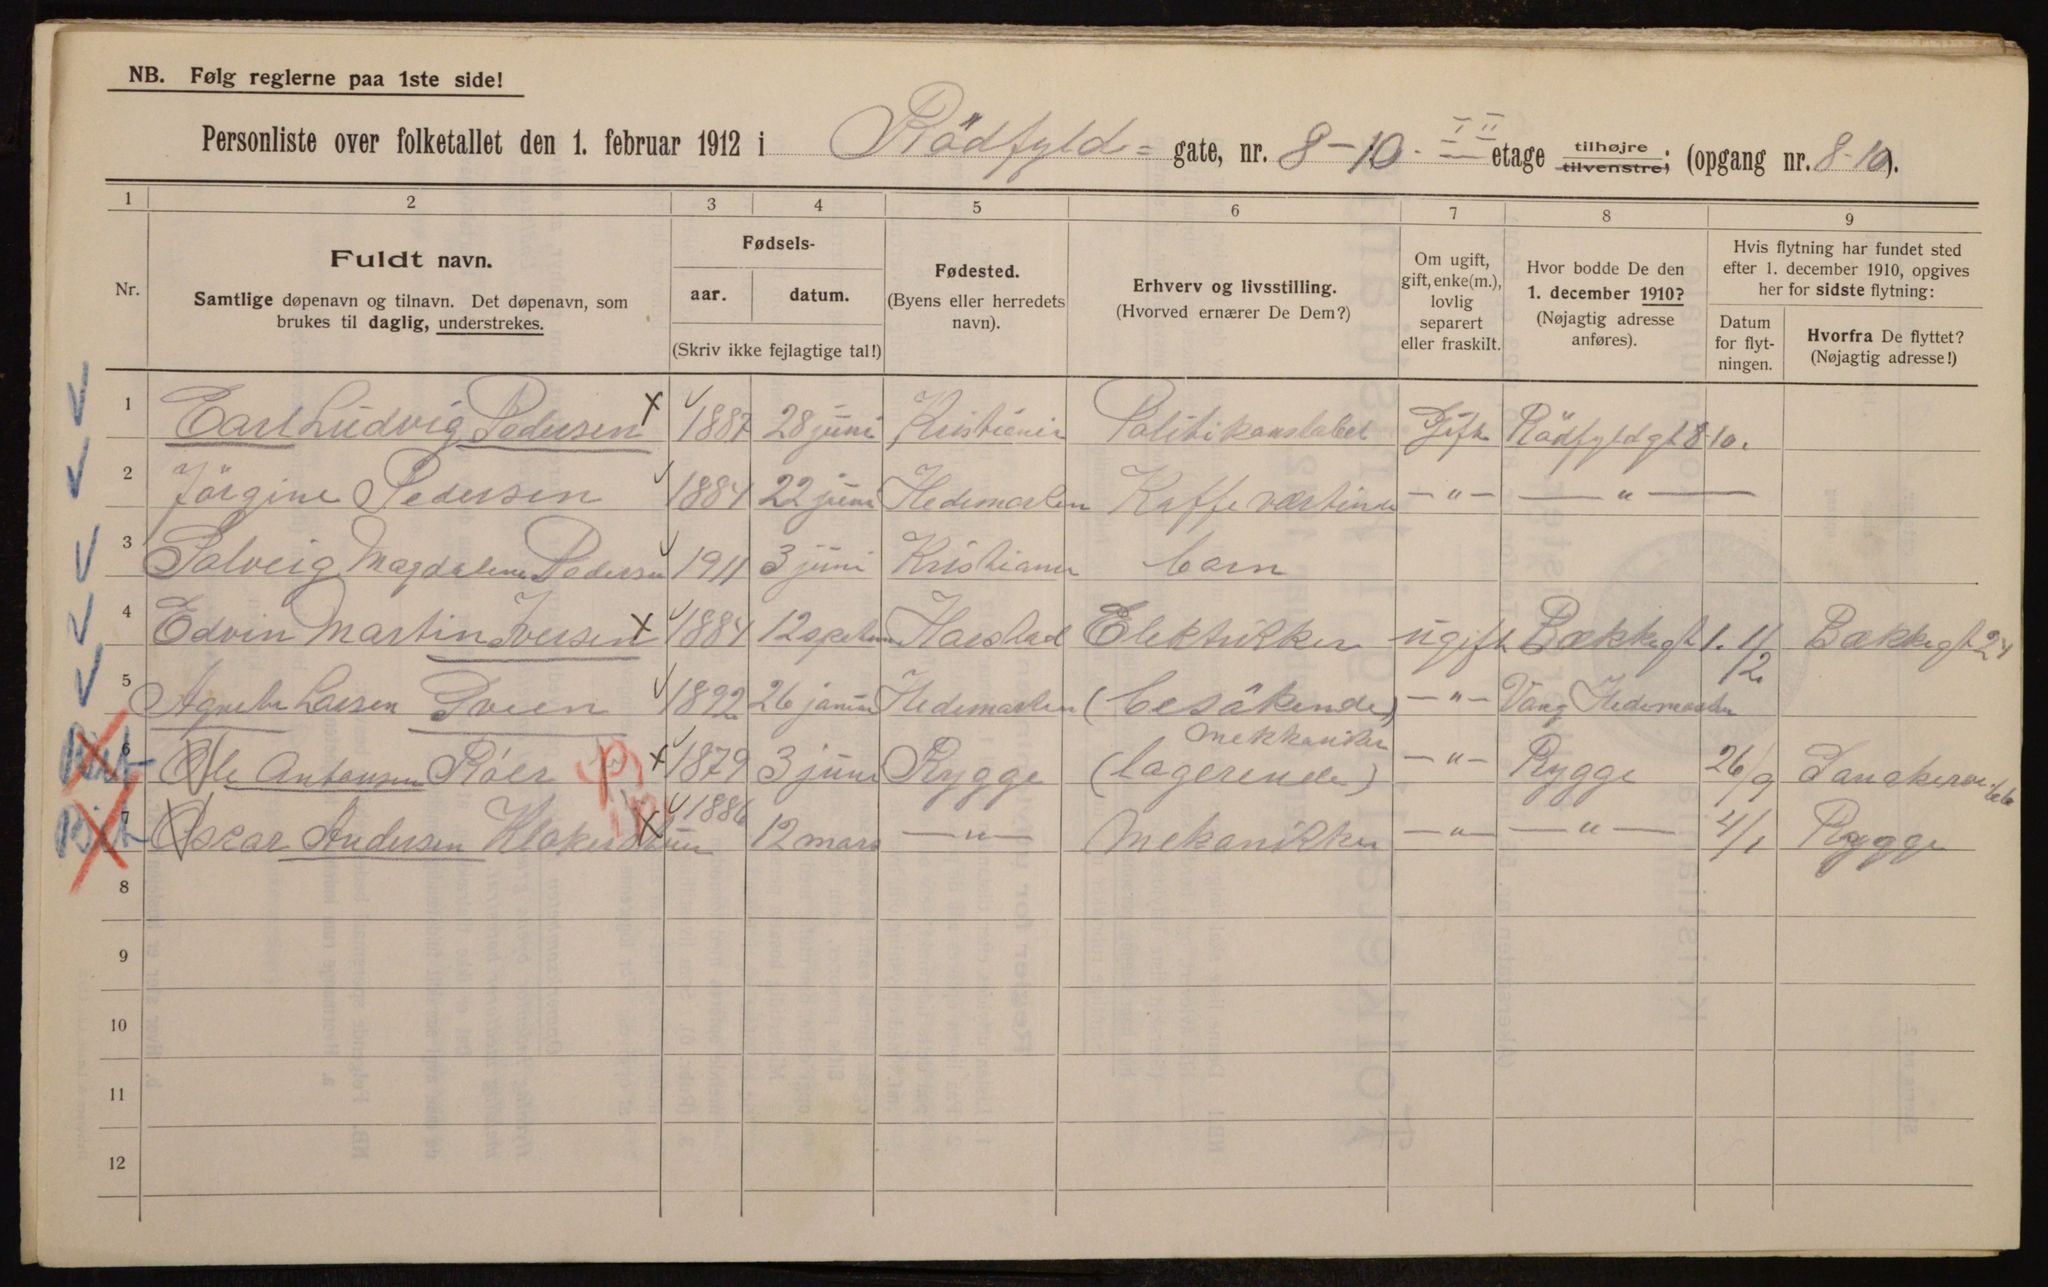 NB. Følg reglerne paa 1ste side!
Personliste over folketallet den 1. februar 1912 i Rödfyld= gate, nr. 8-10. etage tilhøjre tilvenstre; (opgang nr. 8-10).
1 2 3 4 5 6 7 8 9
Nr.
Fuldt navn.
Samtlige døpenavn og tilnavn. Det døpenavn, som
brukes til daglig, understrekes.
Fødsels-
aar. datum.
(Skriv ikke fejlagtige tal!)
Fødested.
(Byens eller herredets
navn).
Erhverv og livsstilling.
(Hvorved ernærer De Dem?)
Om ugift,
gift, enke(m.),
lovlig
separert
eller fraskilt.
Hvor bodde De den
1. december 1910?
(Nøjagtig adresse
anføres).
Hvis flytning har fundet sted
efter 1. december 1910, opgives
her for sidste flytning:
Datum
for flyt-
ningen.
Hvorfra De flyttet?
(Nøjagtig adresse!)
1 Carl Ludvig Pedersen x 1887 28 juni Kristiania Politikonstabel Gift Rödfyldgt 8-10.
2 Jörgine Pedersen 1884 22 juni Hedemarken Kaffe værtinde — " — — " —
3 Solveig Magdalene Pedersen 1911 3 juni Kristiania barn
4 Edvin Martin Iversen x 1884 12 Harstad Elektrikker ugift Bækkegt 1. 1/12 Bækkegt 24
5 Larsen 1892 26 Hedemarken (besökende) — " — Vang Hedemarken
6 Ole Antonsen x 1879 3 juni Rygge (lagerende) mekkaniker — " — Rygge 26/9
7 Oscar Andersen x 1886 12 mars — " — Mekanikker — " — — " — 4/1 Rygge
8
9
10
11
12